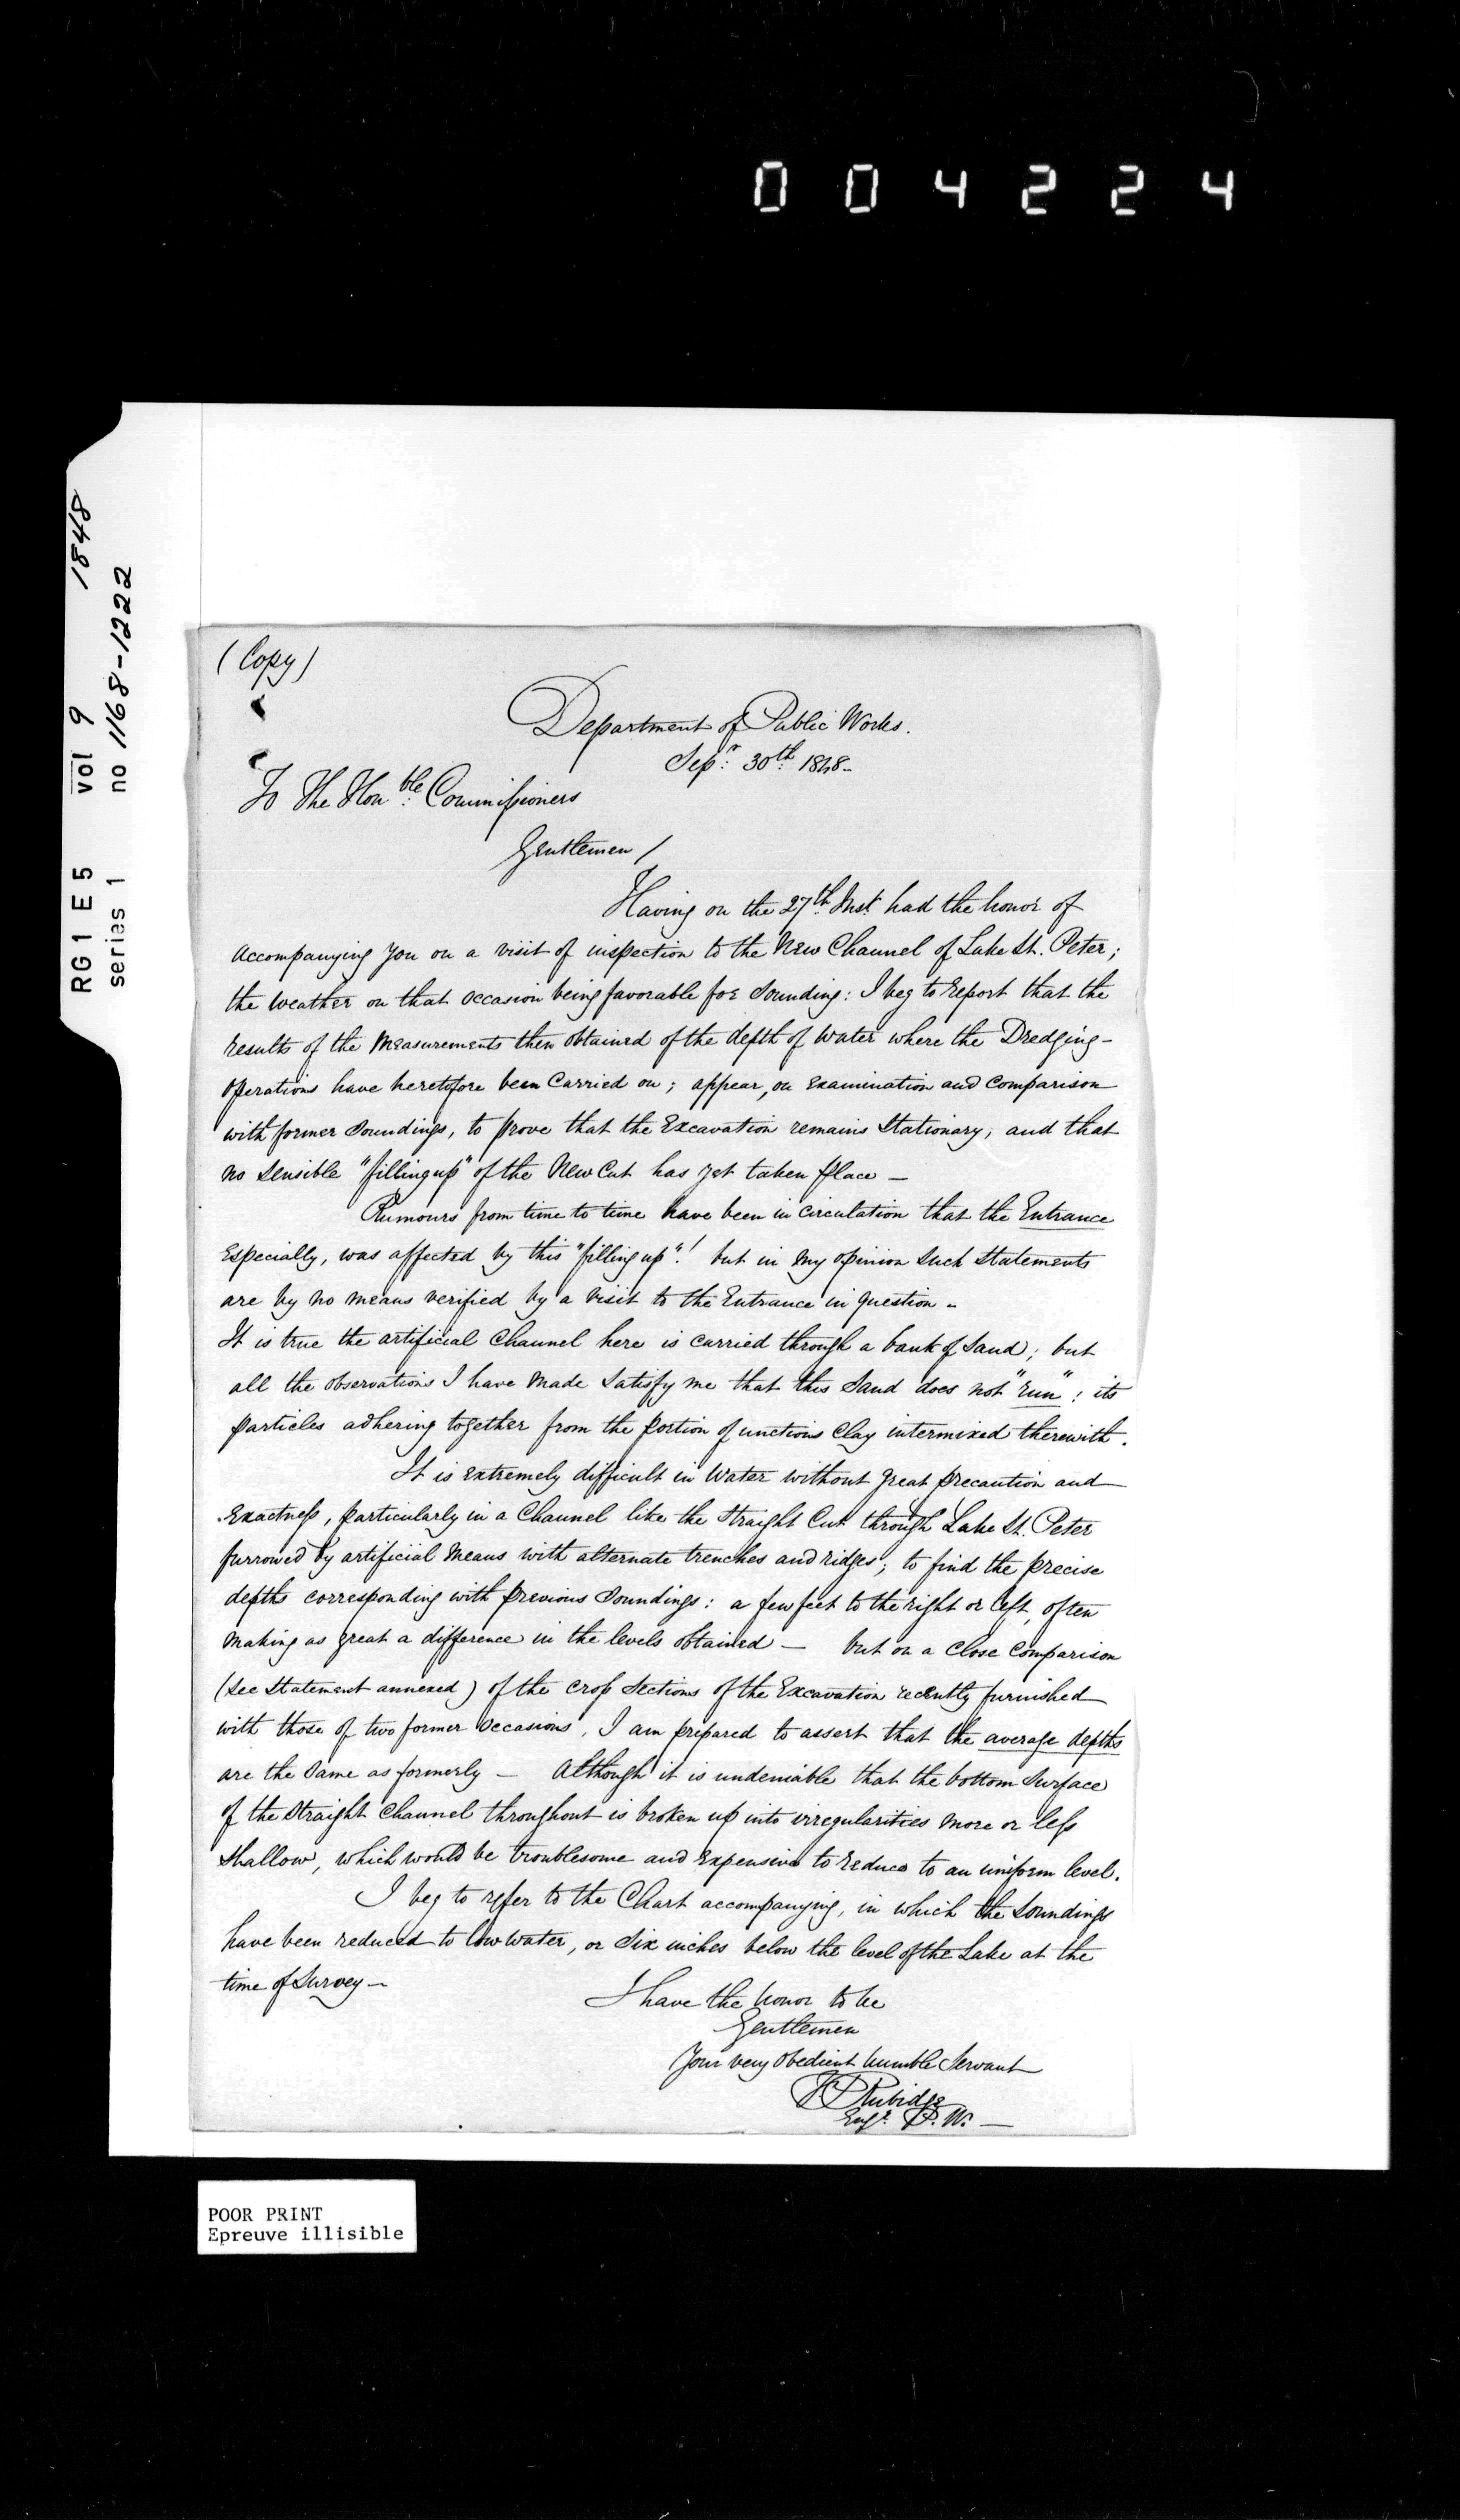 004224
RG1 E5 vol 9 1848
series 1 no 1168-1222
(Copy)
Department of Public Works.
Sepr. 30th. 1848-
To The Honble. Commissioners
Gentlemen /
Having on the 27th. Inst. had the honor of
accompanying you on a visit of inspection to the New Channel of Lake St. Peter;
the weather on that occasion being favorable for Sounding: I beg to report that the
results of the measurements then obtained of the depth of Water where the Dredging-
operations have heretofore been Carried on; appear, on examination and comparison
with former Soundings, to prove that the Excavation remains Stationary, and that
no sensible "filling up" of the New Cut has yet taken place —
Rumours from time to time have been in circulation that the Entrance
Especially, was affected by this "filling up"! but in my opinion such statements
are by no means verified by a visit to the Entrance in question -
It is true the artificial Channel here is carried through a bank of Sand; but
all the observations I have made satisfy me that this Sand does not "run"; its
particles adhering together from the portion of unctious Clay intermixed therewith.
It is extremely difficult in Water without great precaution and
Exactness, particularly in a Channel like the Straight Cut through Lake St. Peter
furrowed by artificial means with alternate trenches and ridges; to find the precise
depths corresponding with previous Soundings: a few feet to the right or left, often
making as great a difference in the levels obtained — but on a close comparison
(see Statement annexed) of the cross Sections of the Excavation recently furnished
with those of two former occasions, I am prepared to assert that the average depths
are the same as formerly — Although it is undeniable that the bottom Surface
of the Straight Channel throughout is broken up into irregularities more or less
shallow, which would be troublesome and expensive to reduce to an uniform level.
I beg to refer to the Chart accompanying, in which the Soundings
have been reduced to low water, or six inches below the level of the Lake at the
time of Survey —
I have the honor to be
Gentlemen
Your very Obedient humble Servant
F P Rubidge
Engr. P. W. —
POOR PRINT
Epreuve illisible